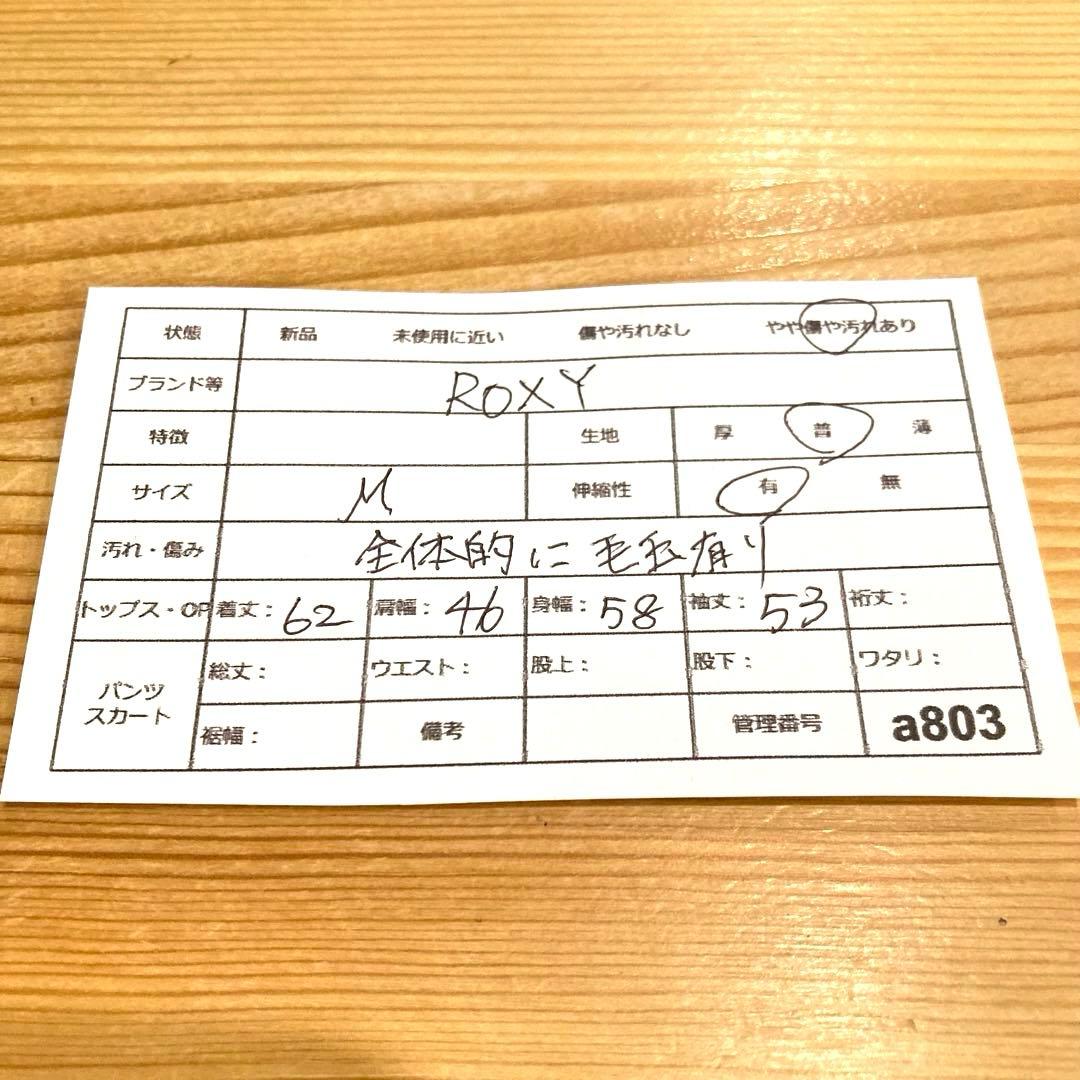 状態 新品 未使用に近い 傷や汚れなし やや傷や汚れあり
ブランド等 ROXY
特徴 生地 厚 普 薄
サイズ M 伸縮性 有 無
汚れ・傷み 全体的に毛玉有り
トップス・OP 着丈：62 肩幅：46 身幅：58 袖丈：53 裄丈：
パンツ スカート 総丈： ウエスト： 股上： 股下： ワタリ：
裾幅： 備考 管理番号 a803